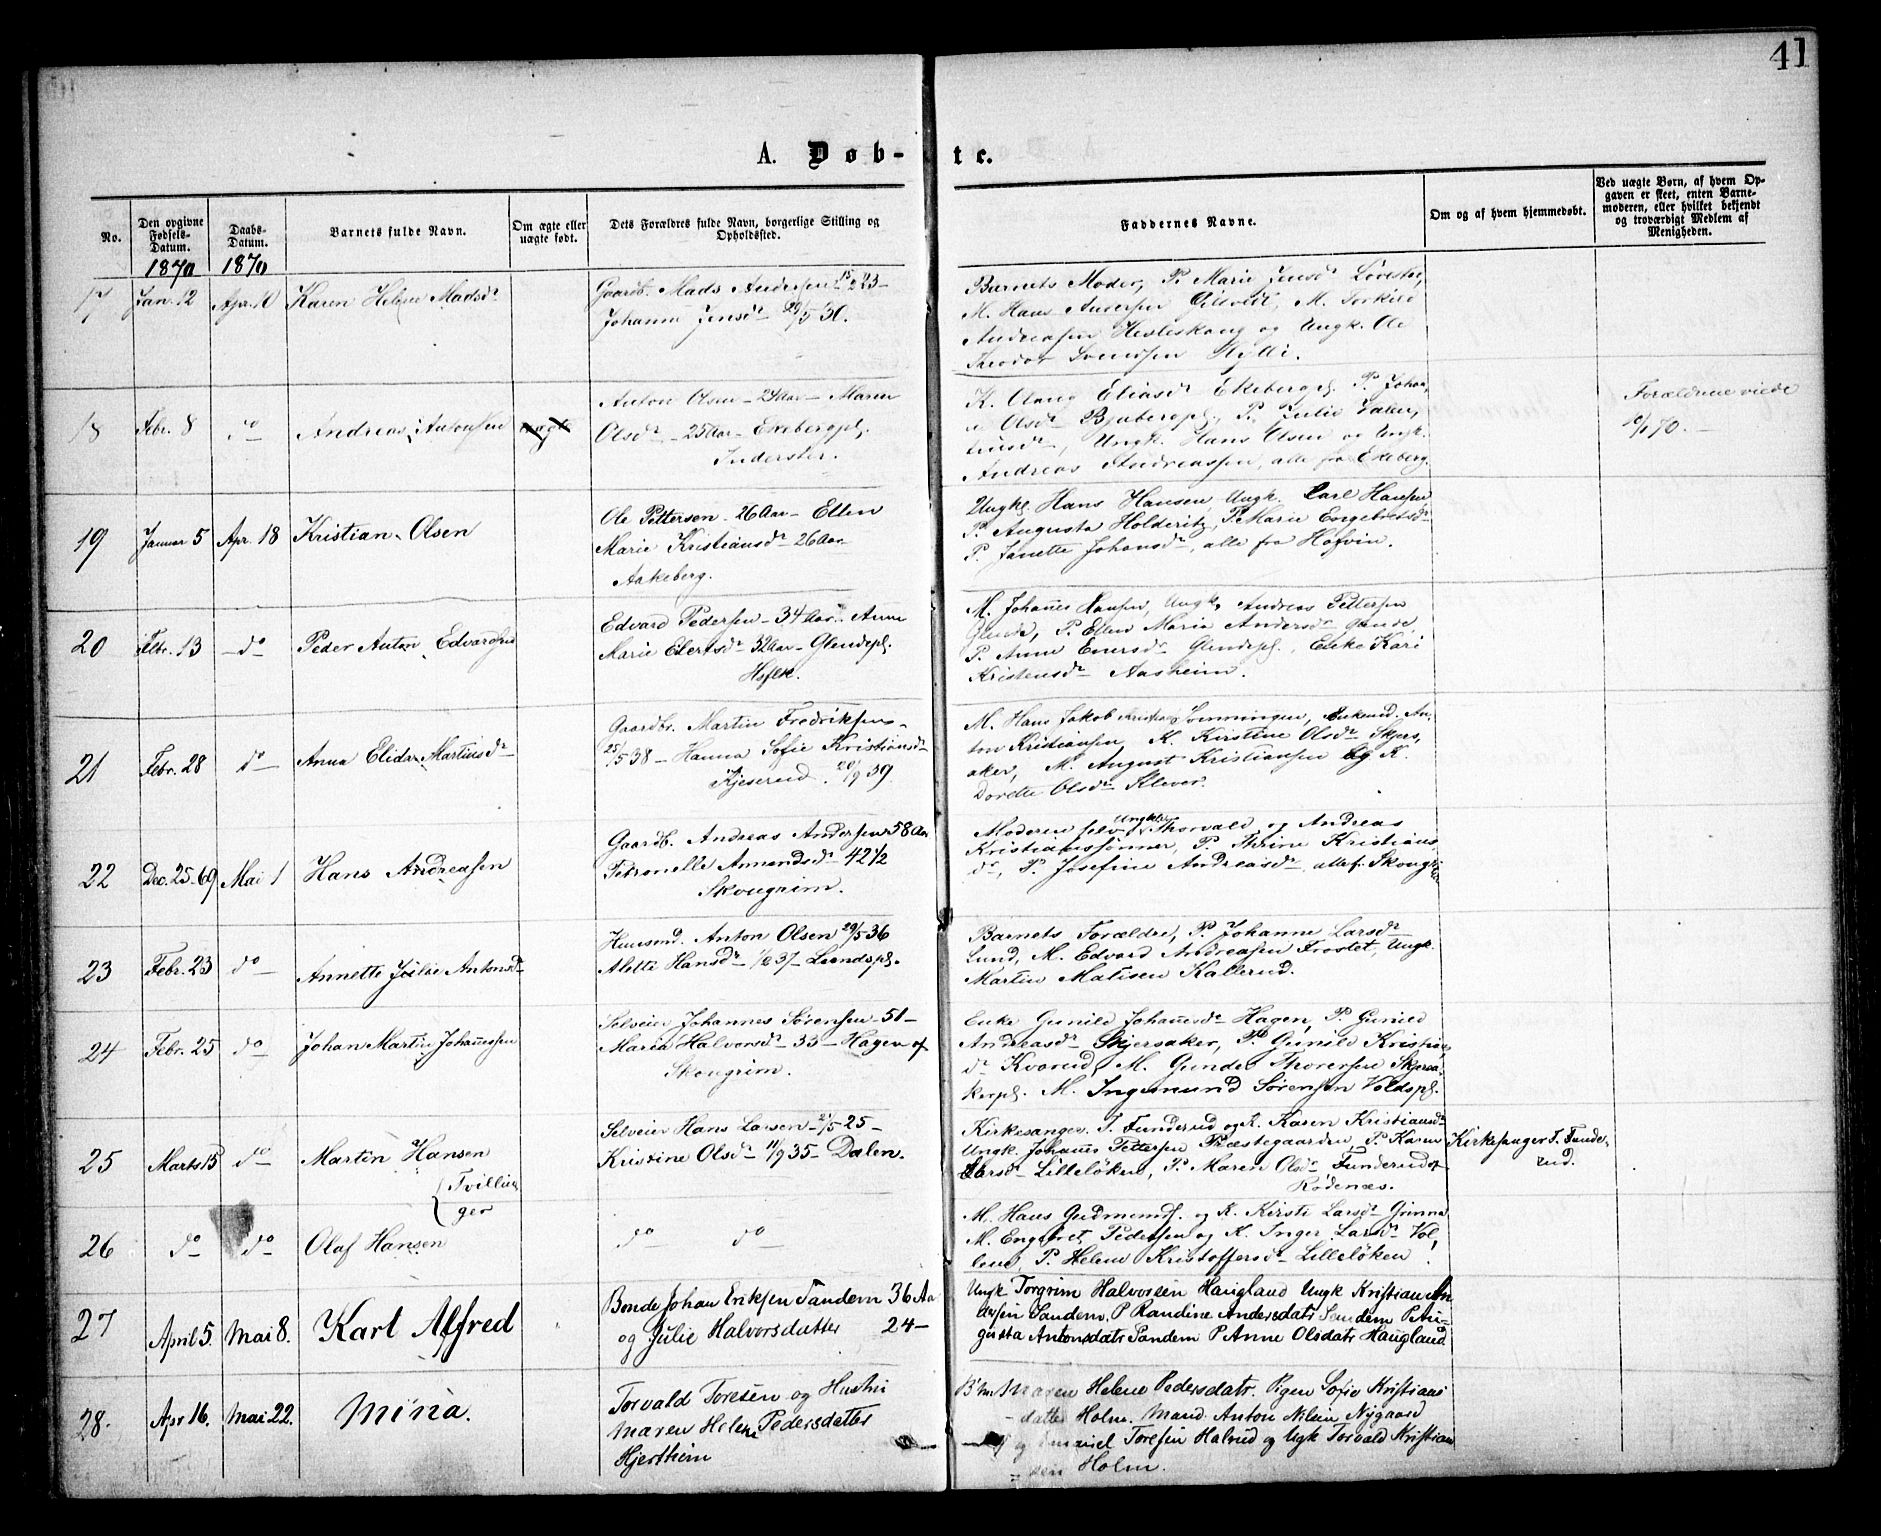 41
A. Døb-
te.
No.
Den opgivne Fødsels-Datum.
1870
Daabs-Datum.
1870
Barnets fulde Navn.
Om ægte eller uægte født.
Dets Forældres fulde Navn, borgerlige Stilling og Opholdssted.
Faddernes Navne.
Om og af hvem hjemmedøbt.
Ved uægte Børn, af hvem Opgaven er skeet, enten Barnemoderen, eller hvilket bekjendt og troværdigt Medlem af Menigheden.
17
Jan. 12
Apr. 10
Karen Helene Madsdr
Gaardb. Mads Andersen
Johanne Jensdr 29/5 30.
Barnets Moder, P. Marie Jensdr
M. Hans Andersen M. Torkild
Andreassen og Ungk. Ole
Theodor Svendsen
18
Febr. 8
do
Andreas Antonsen
uægte
Anton Olsen - 24 Aar - Maren
Olsdr - 25 Aar - Ekebergpl.
Inderster.
K. Olaug Eliasdr Ekebergpl. P. Johan-
e Olsdr P. Julie
Ungk. Hans Olsen og Ungk.
Andreas Andreassen, alle fra Ekeberg.
Forældrene viede
19
Januar 5
Apr. 18
Kristian Olsen
Ole Pettersen - 26 Aar - Ellen
Marie Kristiansdr 26 Aar
Aakeberg.
Ungk. Hans Hansen, Ungk. Carl Hansen
P. Augusta P. Marie Engebretsdr
P. Janette Johansdr, alle fra Hofvin.
20
Febr. 13
do
Peder Anton Edvardsen
Edvard Pedersen - 34 Aar. Anne
Marie Elertsdr 32 Aar - Glendepl.
Hsflk.
M. Johannes Hansen, Ungk. Andreas Pettersen
Glende, P. Ellen Maria Andersdr Glende,
P. Anne Glendepl., Enke Kari
Kristensdr Aasheim.
21
Febr. 28
do
Anna Elida Martinsdr
Gaardbr. Martin Fredriksen -
25/5 38 - Hanna Sofie Kristiansdr
Kjeserud. 20/9 39
M. Hans Jakob Kristian Svenningsen, Enkemd. An-
ton Kristiansen, K. Kirstine Olsdr Skjers-
aker, M. August Kristiansen og K.
Dorette Olsdr Klever.
22
Dec. 25-69
Mai 1
Hans Andreasen
Gaardb. Andreas Andersen 58 Aar
Petronelle Amundsdr 42 1/2
Skougrim.
Moderen selv, Ungkler Thorvald og Andreas
Kristianssønner, P. Thrine Kristians-
dr, P. Josefine Andreasdr, alle f. Skougrim
23
Febr. 23
do
Annette Julie Antonsdr
Huusmd. Anton Olsen 29/5 36
Alette Hansdr 1/6 37 - Lundspl.
Barnets Forældre, P. Johanne Larsdr
Lund, M. Edvard Andreasen Frostet, Ungk.
Martin Matisen Kallerud.
24
Febr. 25
do
Johan Martin Johannessen
Selveier Johannes Sørensen - 51 -
Maria Halvorsdr - 33 - Hagen af
Skougrim.
Enke Gunild Johannesdr Hagen, P. Gunild
Andreasdr Skjersaker, P. Gunild Kristians-
dr Kvorud, M. Gunder Thoresen Skjersa-
kerpl. M. Ingemund Sørensen Voldspl.
25
Marts 15
do
Martin Hansen
Tvillin-
ger
Selveier Hans Larsen - 2/5 25 -
Kristine Olsdr 11/9 35 - Dalen.
Kirkesanger T. Funderud og K. Karen Kristiansdr
Ungk. Johannes Pettersen Præstegaarden, P. Karen
Larsdr Lilleløken, P. Maren Olsdr Funderud af
Rødenæs.
Kirkesanger T. Funde-
rud.
26
do
do
Olaf Hansen
do do
M. Hans Gudmunds. og K. Kirsti Larsdr Grinna
M. Engebret Pedersen og K. Inger Larsdr Vol-
len, P. Helene Kristoffersdr Lilleløken
27
April 5.
Mai 8.
Karl Alfred
Bonde Johan Eriksen Sandem 36 Aa
og Julie Halvorsdatter 24 -
Ungk Torgrim Halvorsen Haugland Ungk Kristian An-
dersen Sandem P Randine Andersdatr Sandem P Au-
gusta Antonsdatr Sandem P Anne Olsdatr Haugland
28.
Apr 16.
Mai 22.
Mina.
Torvald Toresen og Hustru
Maren Helene Pedersdatter
Hjerthein
B. M. Maren Helene Pedersdatr. Pigen Sofie Kristians-
datter Holm. Mand Anton Nygaard
og Toresen Halrud og Ugk Torvald Kristian-
sen Holm.